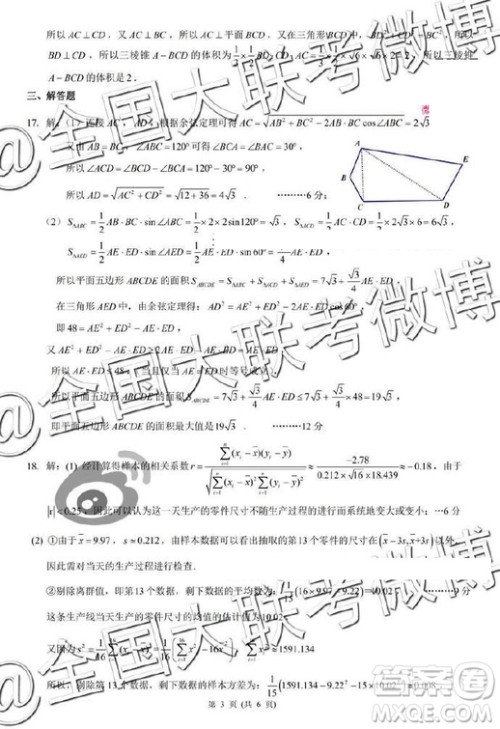 所以 AC⊥CD，又 AC⊥BC，所以 AC⊥平面 BCD，又在三角形 BCD 中，
BD⊥CD，所以三棱锥 A−BCD 的体积为
所以三棱锥
A−BCD 的体积是 2．
三、解答题
17．解：(1) 连接 AC，AD，根据余弦定理可得 AC=√(AB²+BC²−2AB·BC cos∠ABC)=2√3
又由 AB=BC，∠ABC=120° 可得∠BCA=∠BAC=30°，
所以∠ACD=∠BCD−∠BCA=120°−30°=90°，
所以 AD=√(AC²+CD²)=√(12+36)=4√3．………6 分；
A
E
B
C
D
(2) S△ABC=1/2 AB·BC·sin∠ABC=1/2×2×2sin120°=√3，S△ACD=1/2 AC·CD=1/2×2√3×6=6√3，
S△AED=1/2 AE·ED·sin∠AED=1/2 AE·ED·sin60°=√3/4 AE·ED，
所以平面五边形 ABCDE 的面积 S_ABCDE=S△ABC+S△ACD+S△AED=7√3+√3/4 AE·ED，
在三角形 AED 中，由余弦定理得：AD²=AE²+ED²−2AE·ED cos60°，
即 48=AE²+ED²−AE·ED，
又 AE²+ED²−AE·ED≥2AE·ED−AE·ED=AE·ED，
所以 AE·ED≤48，当且仅当 AE=ED 时取等号，
所以平面五边形 ABCDE 的面积 S_ABCDE=7√3+√3/4 AE·ED≤7√3+√3/4×48=19√3，
即平面五边形 ABCDE 的面积最大值是 19√3．………12 分
18．解：(1) 经计算得样本的相关系数 r= ≈ −2.78/(0.212×√16×18.439) ≈−0.18，由于
|r|<0.25，因此可以认为这一天生产的零件尺寸不随生产过程的进行而系统地变大或变小．
(2) ①由于 x̄=9.97，s≈0.212，由样本数据可以看出抽取的第 13 个零件的尺寸在 (x̄−3s, x̄+3s) 以外，
因此需对当天的生产过程进行检查．
②剔除离群值，即第 13 个数据，剩下数据的平均数为 1/15(16×9.97−9.22)=10.02，………9 分
这条生产线当天生产的零件尺寸的均值的估计值为10.02．
所以，剔除第 13 个数据，剩下数据的样本方差为：1/15(1591.134−9.22²−15×10.02²)≈0.008，
第 3 页 (共 6 页)
@全国大联考微博
@全国大联考微博
@全国大联考微博
答案圈